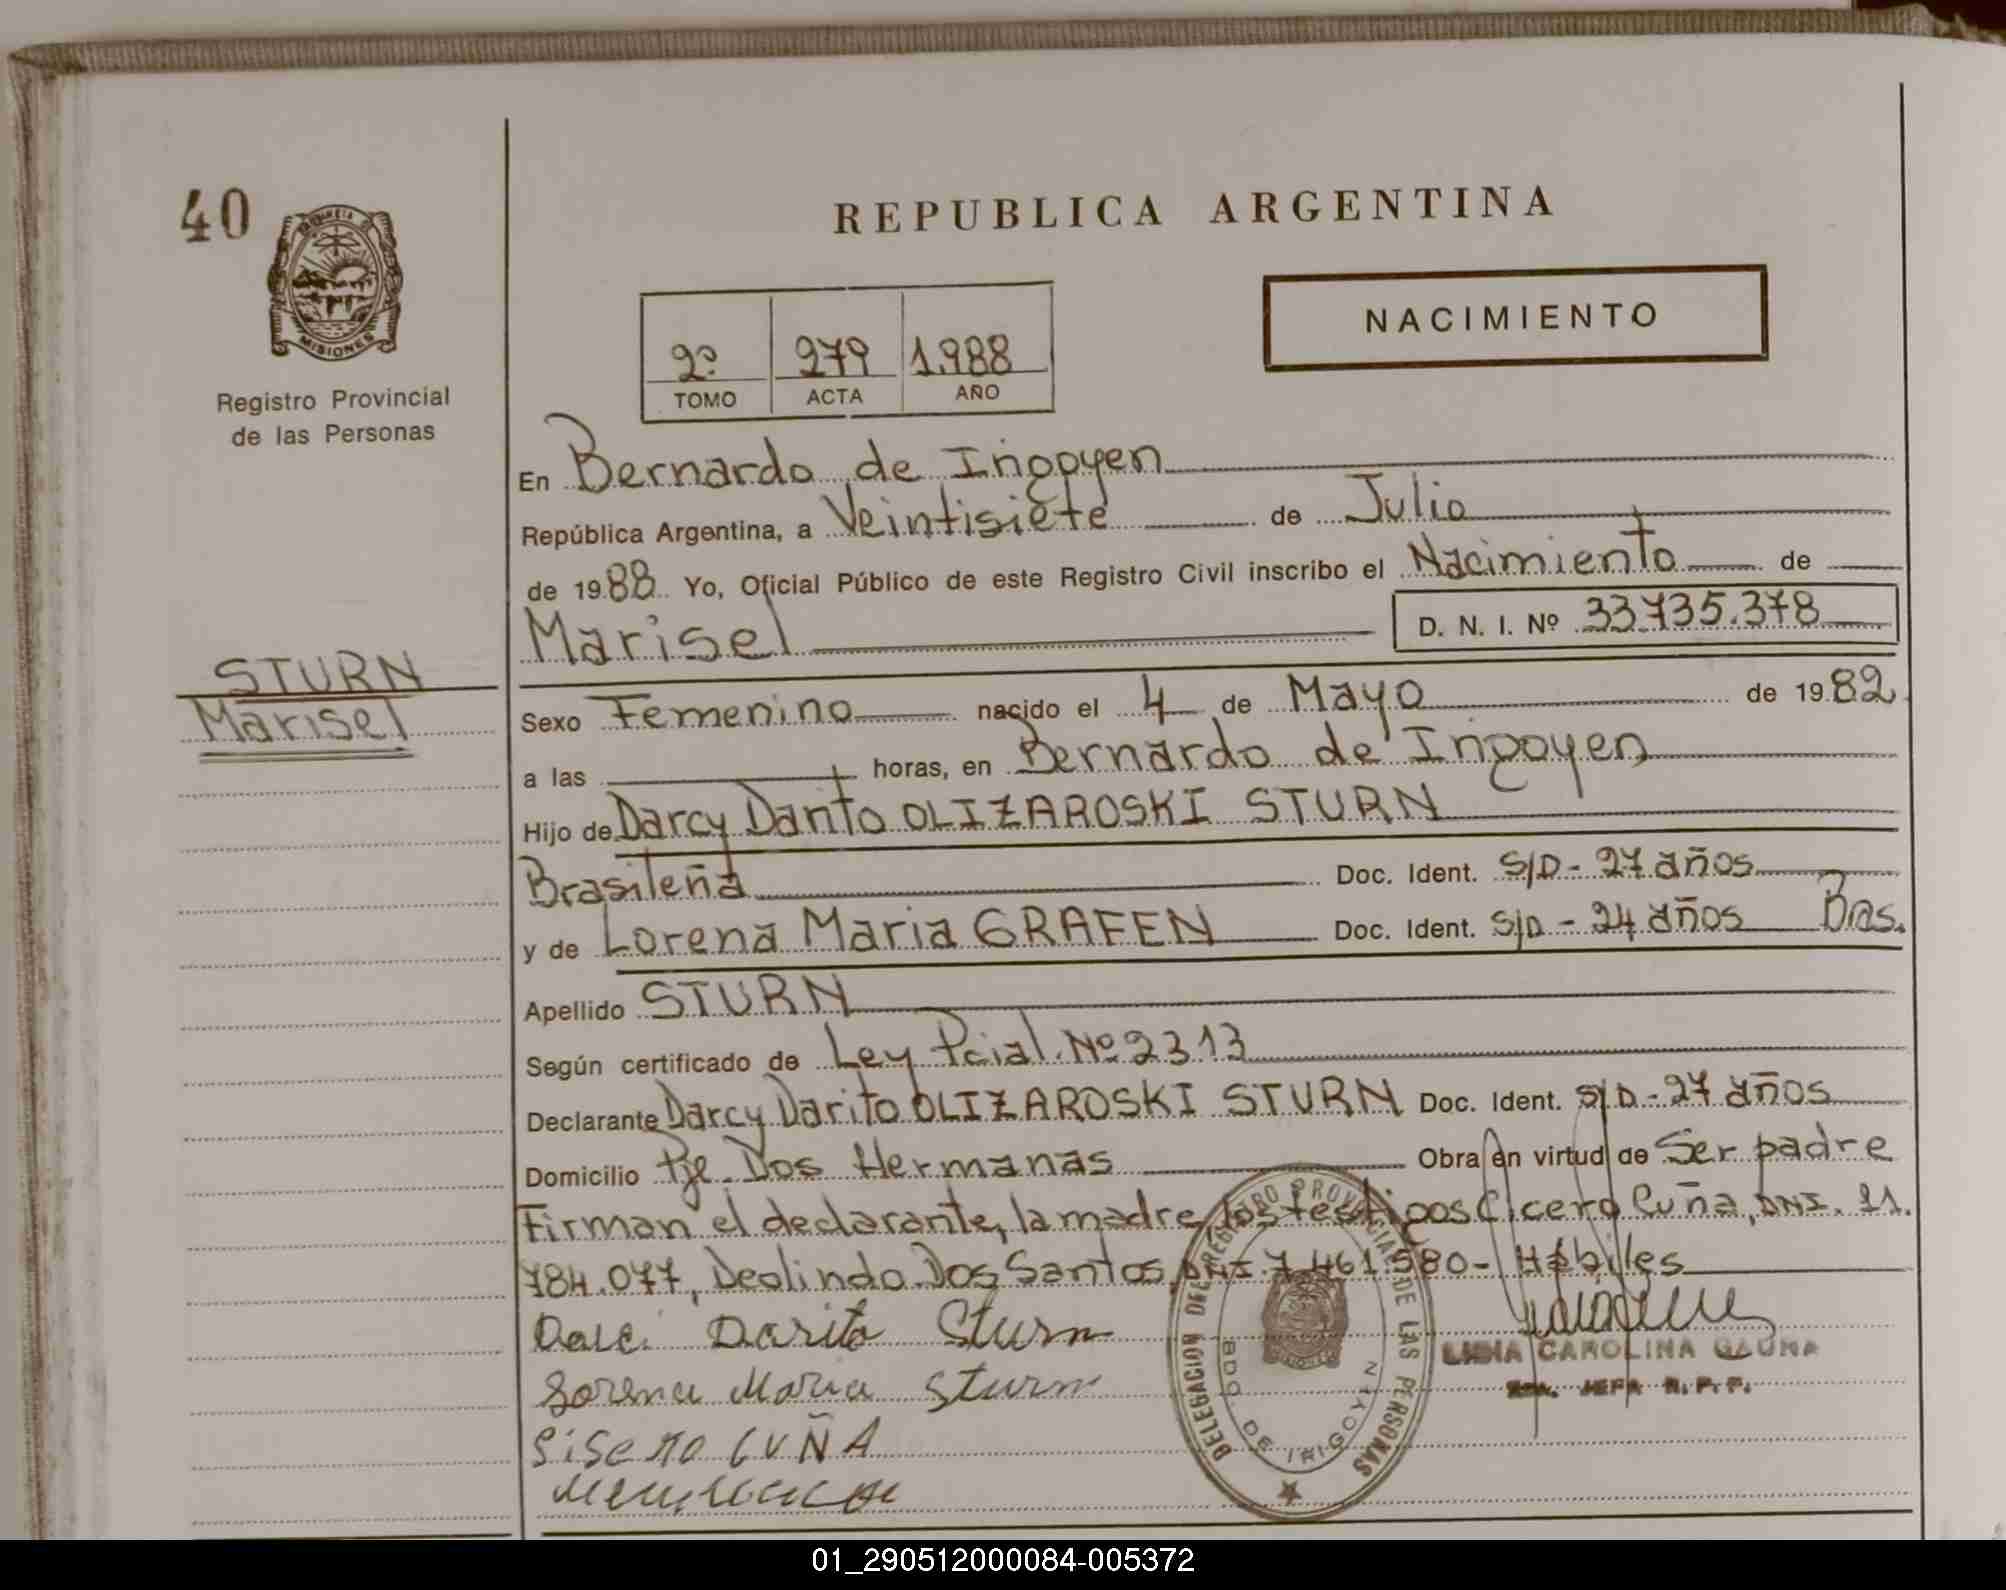 40
MISIONES
Registro Provincial
de las Personas
REPUBLICA ARGENTINA
NACIMIENTO
2º 279 1.988
TOMO ACTA AÑO
En Bernardo de Irigoyen
República Argentina, a Veintisiete de Julio
de 1988 Yo, Oficial Público de este Registro Civil inscribo el Nacimiento de
Marisel D. N. I. Nº 33.735.378
STURN
Marisel
Sexo Femenino nacido el 4 de Mayo de 1982
a las horas, en Bernardo de Irigoyen
Hijo de Darcy Darito OLIZAROSKI STURN
Brasileña Doc. Ident. S/D - 27 años
y de Lorena Maria GRAFEN Doc. Ident. S/D - 24 años Bras.
Apellido STURN
Según certificado de Ley Pcial. Nº 2313
Declarante Darcy Darito OLIZAROSKI STURN Doc. Ident. S/D - 27 años
Domicilio Pje. Dos Hermanas Obra en virtud de Ser padre
Firman el declarante, la madre, los testigos Cicero Cuña, DNI. 11.
784.077, Deolindo Dos Santos, DNI. 7.461.580 - Hábiles
Darci Darito Sturn
Lorena Maria Sturm
SiSeRo CUÑA
DELEGACION DEL REGISTRO PROVINCIAL DE LAS PERSONAS
BDO. DE IRIGOYEN
MISIONES
LIDIA CAROLINA GAUNA
JEFA R. P. P.
01_290512000084-005372